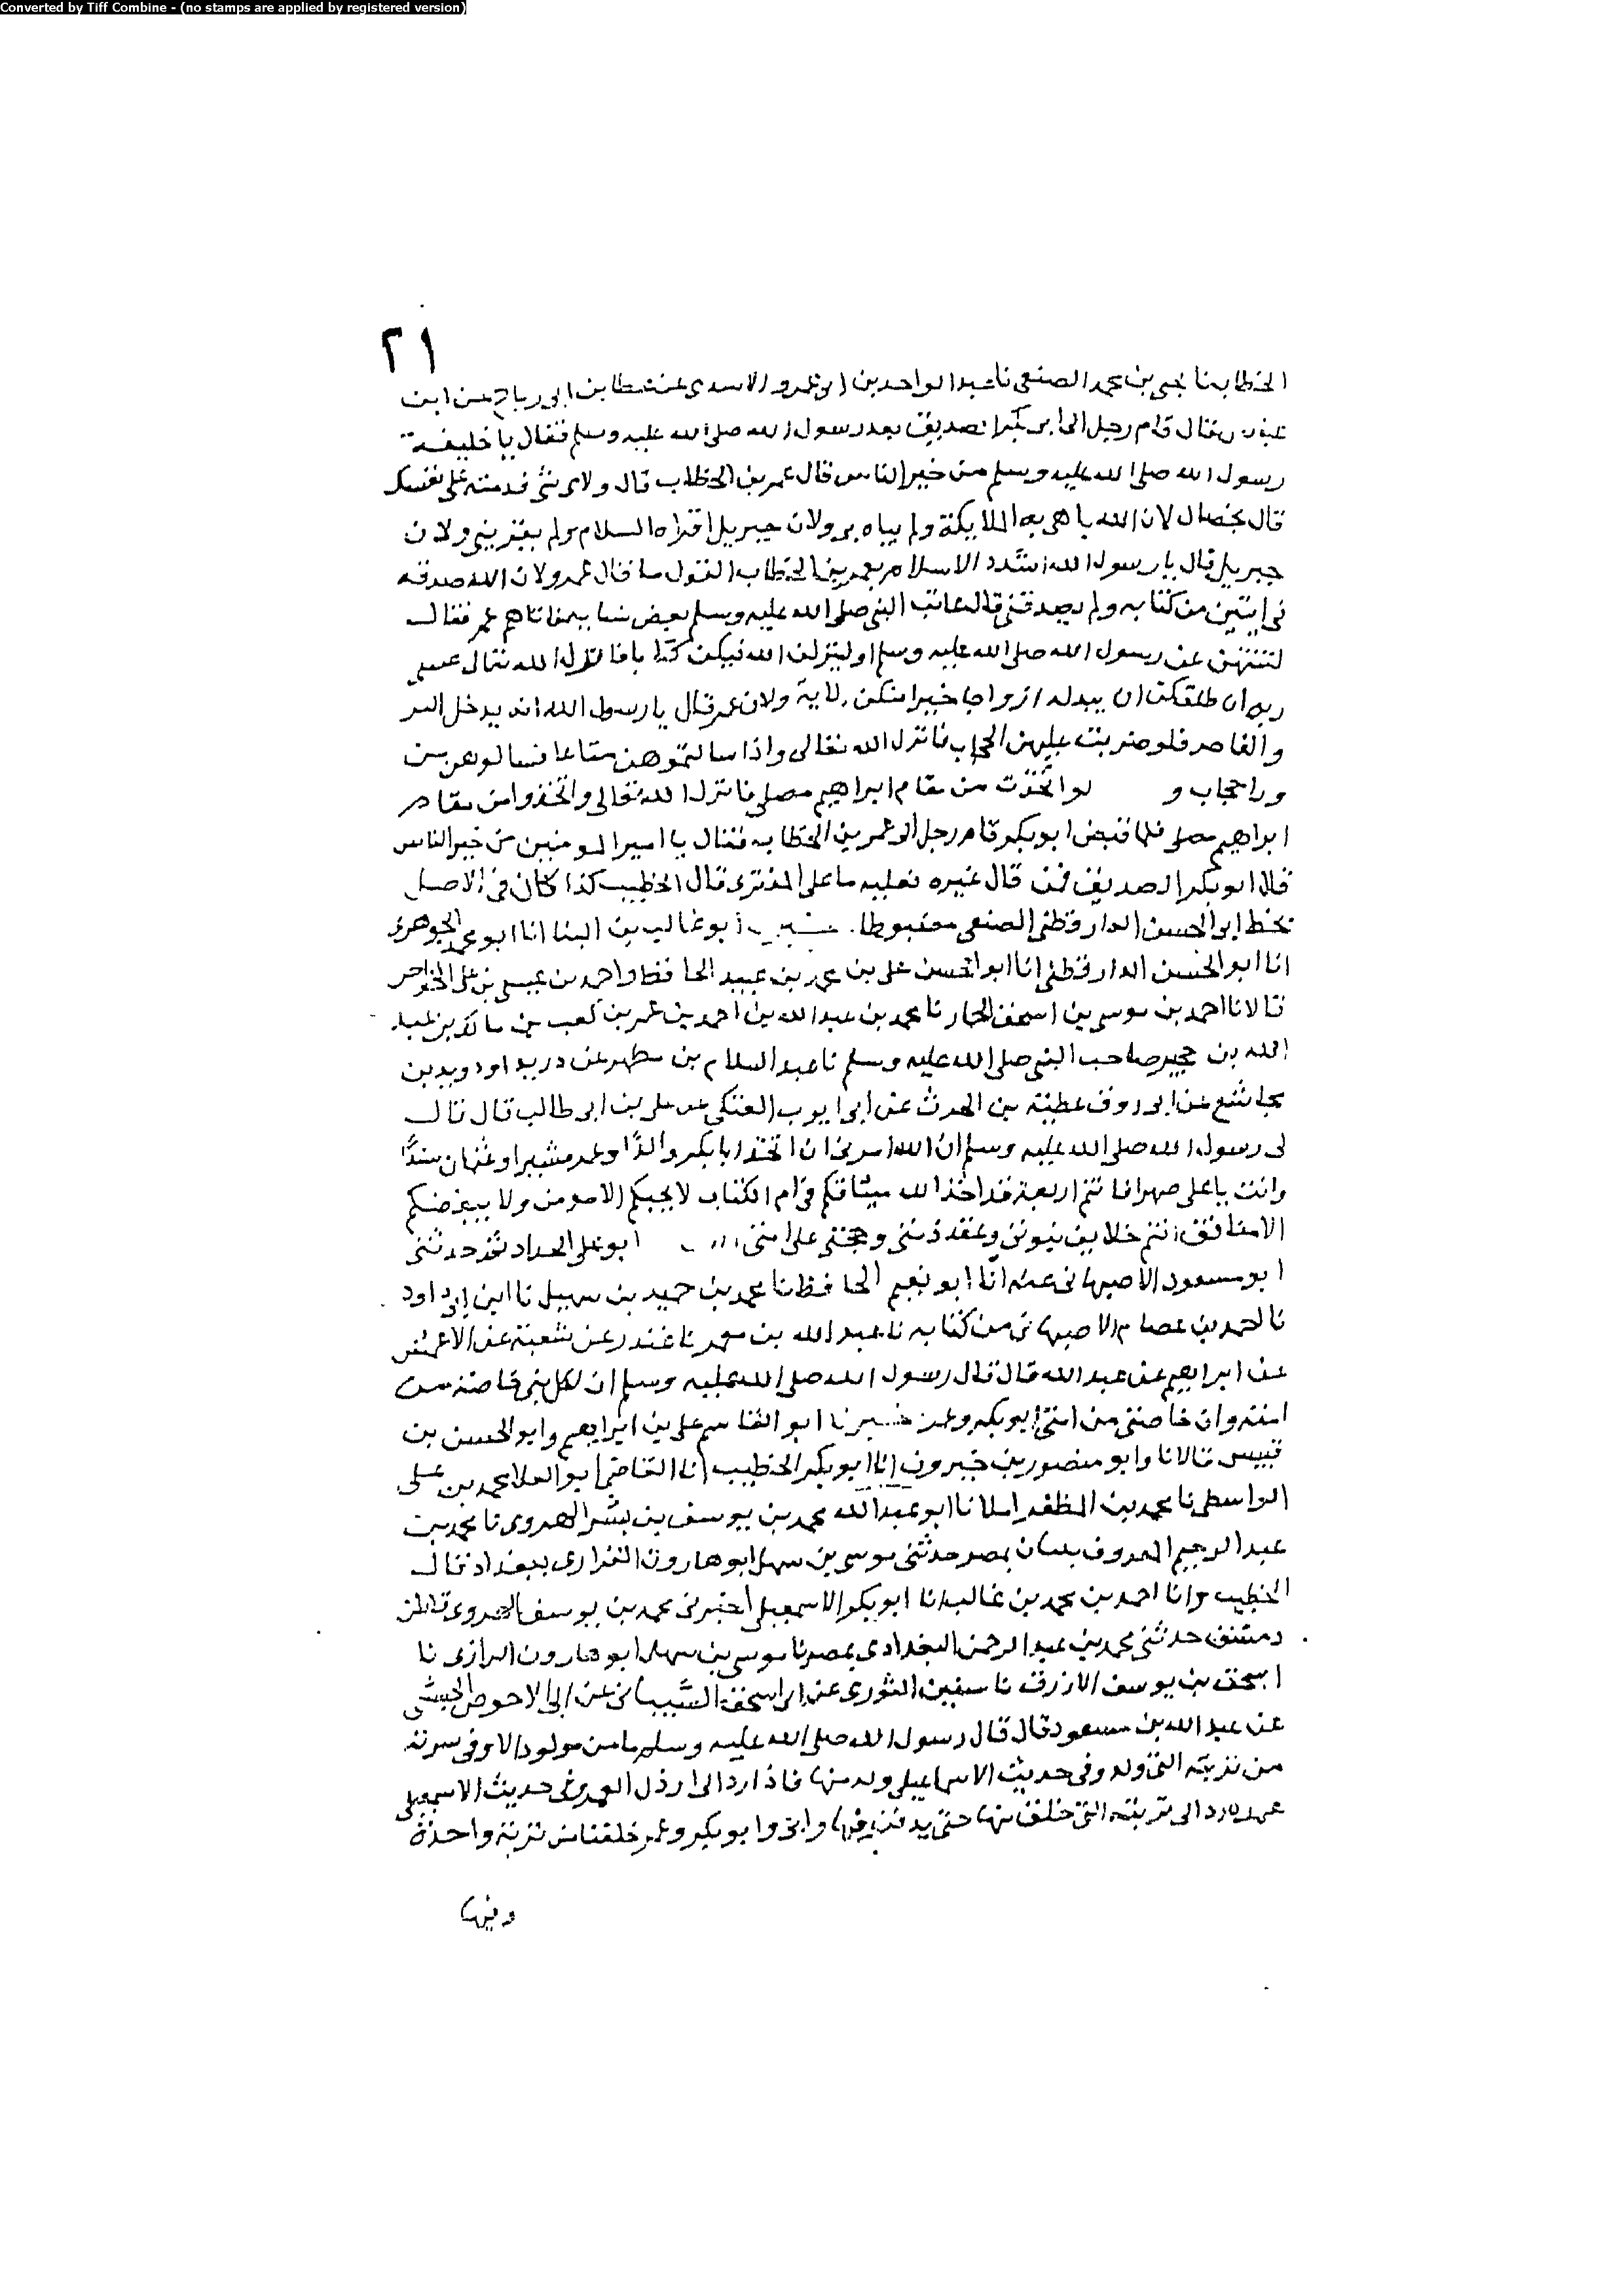 Converted by Tiff Combine - (no stamps are applied by registered version)
٢١
الخطاب نا يحيى بن محمد الصنعى نا عبد الواحد بن ابى عمرو الاسدى عن عطا بن ابى رباح عن ابن
عباس قال قام رجل الى ابى بكر الصديق بعد رسول الله صلى الله عليه وسلم فقال يا خليفة
رسول الله صلى الله عليه وسلم من خير الناس قال عمر بن الخطاب قال ولاى شى قدمته على نفسك
قال بخصال لان الله باهى به الملايكة ولم يباه بى ولان جبريل اقراه السلام ولم يقرينى ولان
جبريل قال يا رسول الله اشدد الاسلام بعمر بن الخطاب القول ما قال عمر ولان الله صدقه
فى ايتين من كتابه ولم يصدقنى قال عاتب النبى صلى الله عليه وسلم بعض نسايه فاتاهم عمر فقال
لتنتهن عن رسول الله صلى الله عليه وسلم او لينزلن الله فيكن كتابا فانزل الله تعالى عسى
ربه ان طلقكن ان يبدله ازواجا خيرا منكن الاية ولان عمر قال يا رسول الله انه يدخل البر
والفاجر فلو ضربت عليهن الحجاب فانزل الله تعالى واذا سالتموهن متاعا فسالوهن من
ورا حجاب و لو اتخذت من مقام ابراهيم مصلى فانزل الله تعالى واتخذوا من مقام
ابراهيم مصلى فلما قبض ابو بكر قام رجل الى عمر بن الخطاب فقال يا امير المومنين من خير الناس
قال ابو بكر الصديق فمن قال غيره فعليه ما على المفترى قال الخطيب كذا كان فى الاصل
بخط ابى الحسن الدارقطنى الصنعى مضبوطا ابو غالب بن البنا انا ابو محمد الجوهرى
انا ابو الحسن الدارقطنى انا ابو الحسن على بن محمد بن عبيد الحافظ واحمد بن عيسى بن على الخواص
قالا نا احمد بن موسى بن اسحق الحمار نا محمد بن عبد الله بن احمد بن عمر بن كعب بن مالك بن عبد
الله بن جحير صاحب النبى صلى الله عليه وسلم نا عبد السلام بن مطهر عن دريد اود ويد بن
مجاشع عن ابى روق عطية بن الحرث عن ابى ايوب العتكى عن على بن ابى طالب قال قال
لى رسول الله صلى الله عليه وسلم ان الله امرنى ان اتخذ ابا بكر والدا وعمر مشيرا وعثمان سندا
وانت يا على صهرا فانتم اربعة قد اخذ الله ميثاقكم فى ام الكتاب لا يحبكم الا مومن ولا يبغضكم
الا منافق انتم خلايف نبوتى وعقد ذمتى وحجتى على امتى ابو على الحداد ثم حدثنى
ابو مسعود الاصبهانى عنه انا ابو نعيم الحافظ نا محمد بن حميد بن سهيل نا ابن ابى داود
نا احمد بن عصام الاصبهانى من كتابه نا عبد الله بن محمد نا غندر عن شعبة عن الاعمش
عن ابراهيم عن عبد الله قال قال رسول الله صلى الله عليه وسلم ان لكل نبى خاصة من
امته وان خاصتى من امتى ابو بكر وعمر خبرنا ابو القاسم على بن ابراهيم وابو الحسن بن
قبيس قالا نا وابو منصور بن خيرون انا ابو بكر الخطيب انا القاضى ابو العلا محمد بن على
الواسطى نا محمد بن المظفر املا نا ابو عبد الله محمد بن يوسف بن بشر الهروى نا محمد بن
عبد الرحيم المعروف بلسان بمصر حدثنى موسى بن سهل ابو هارون الفزارى ببغداد قال
الخطيب وانا احمد بن محمد بن غالب انا ابو بكر الاسمعيلى اخبرنى محمد بن يوسف الهروى قاطن
دمشق حدثنى محمد بن عبد الرحمن البغدادى بمصر نا موسى بن سهل ابو هارون الرازى نا
اسحق بن يوسف الازرق نا سفين الثورى عن ابى اسحق الشيبانى عن ابى الاحوص الجشمى
عن عبد الله بن مسعود قال قال رسول الله صلى الله عليه وسلم ما من مولود الا وفى سرته
من تربته التى ولد وفى حديث الاسماعيلى ولد منها فاذا رد الى ارذل العمر وفى حديث الاسمعيلى
عمره رد الى تربته التى خلق منها حتى يدفن فيها وانى وابو بكر وعمر خلقنا من تربة واحدة
وفيها